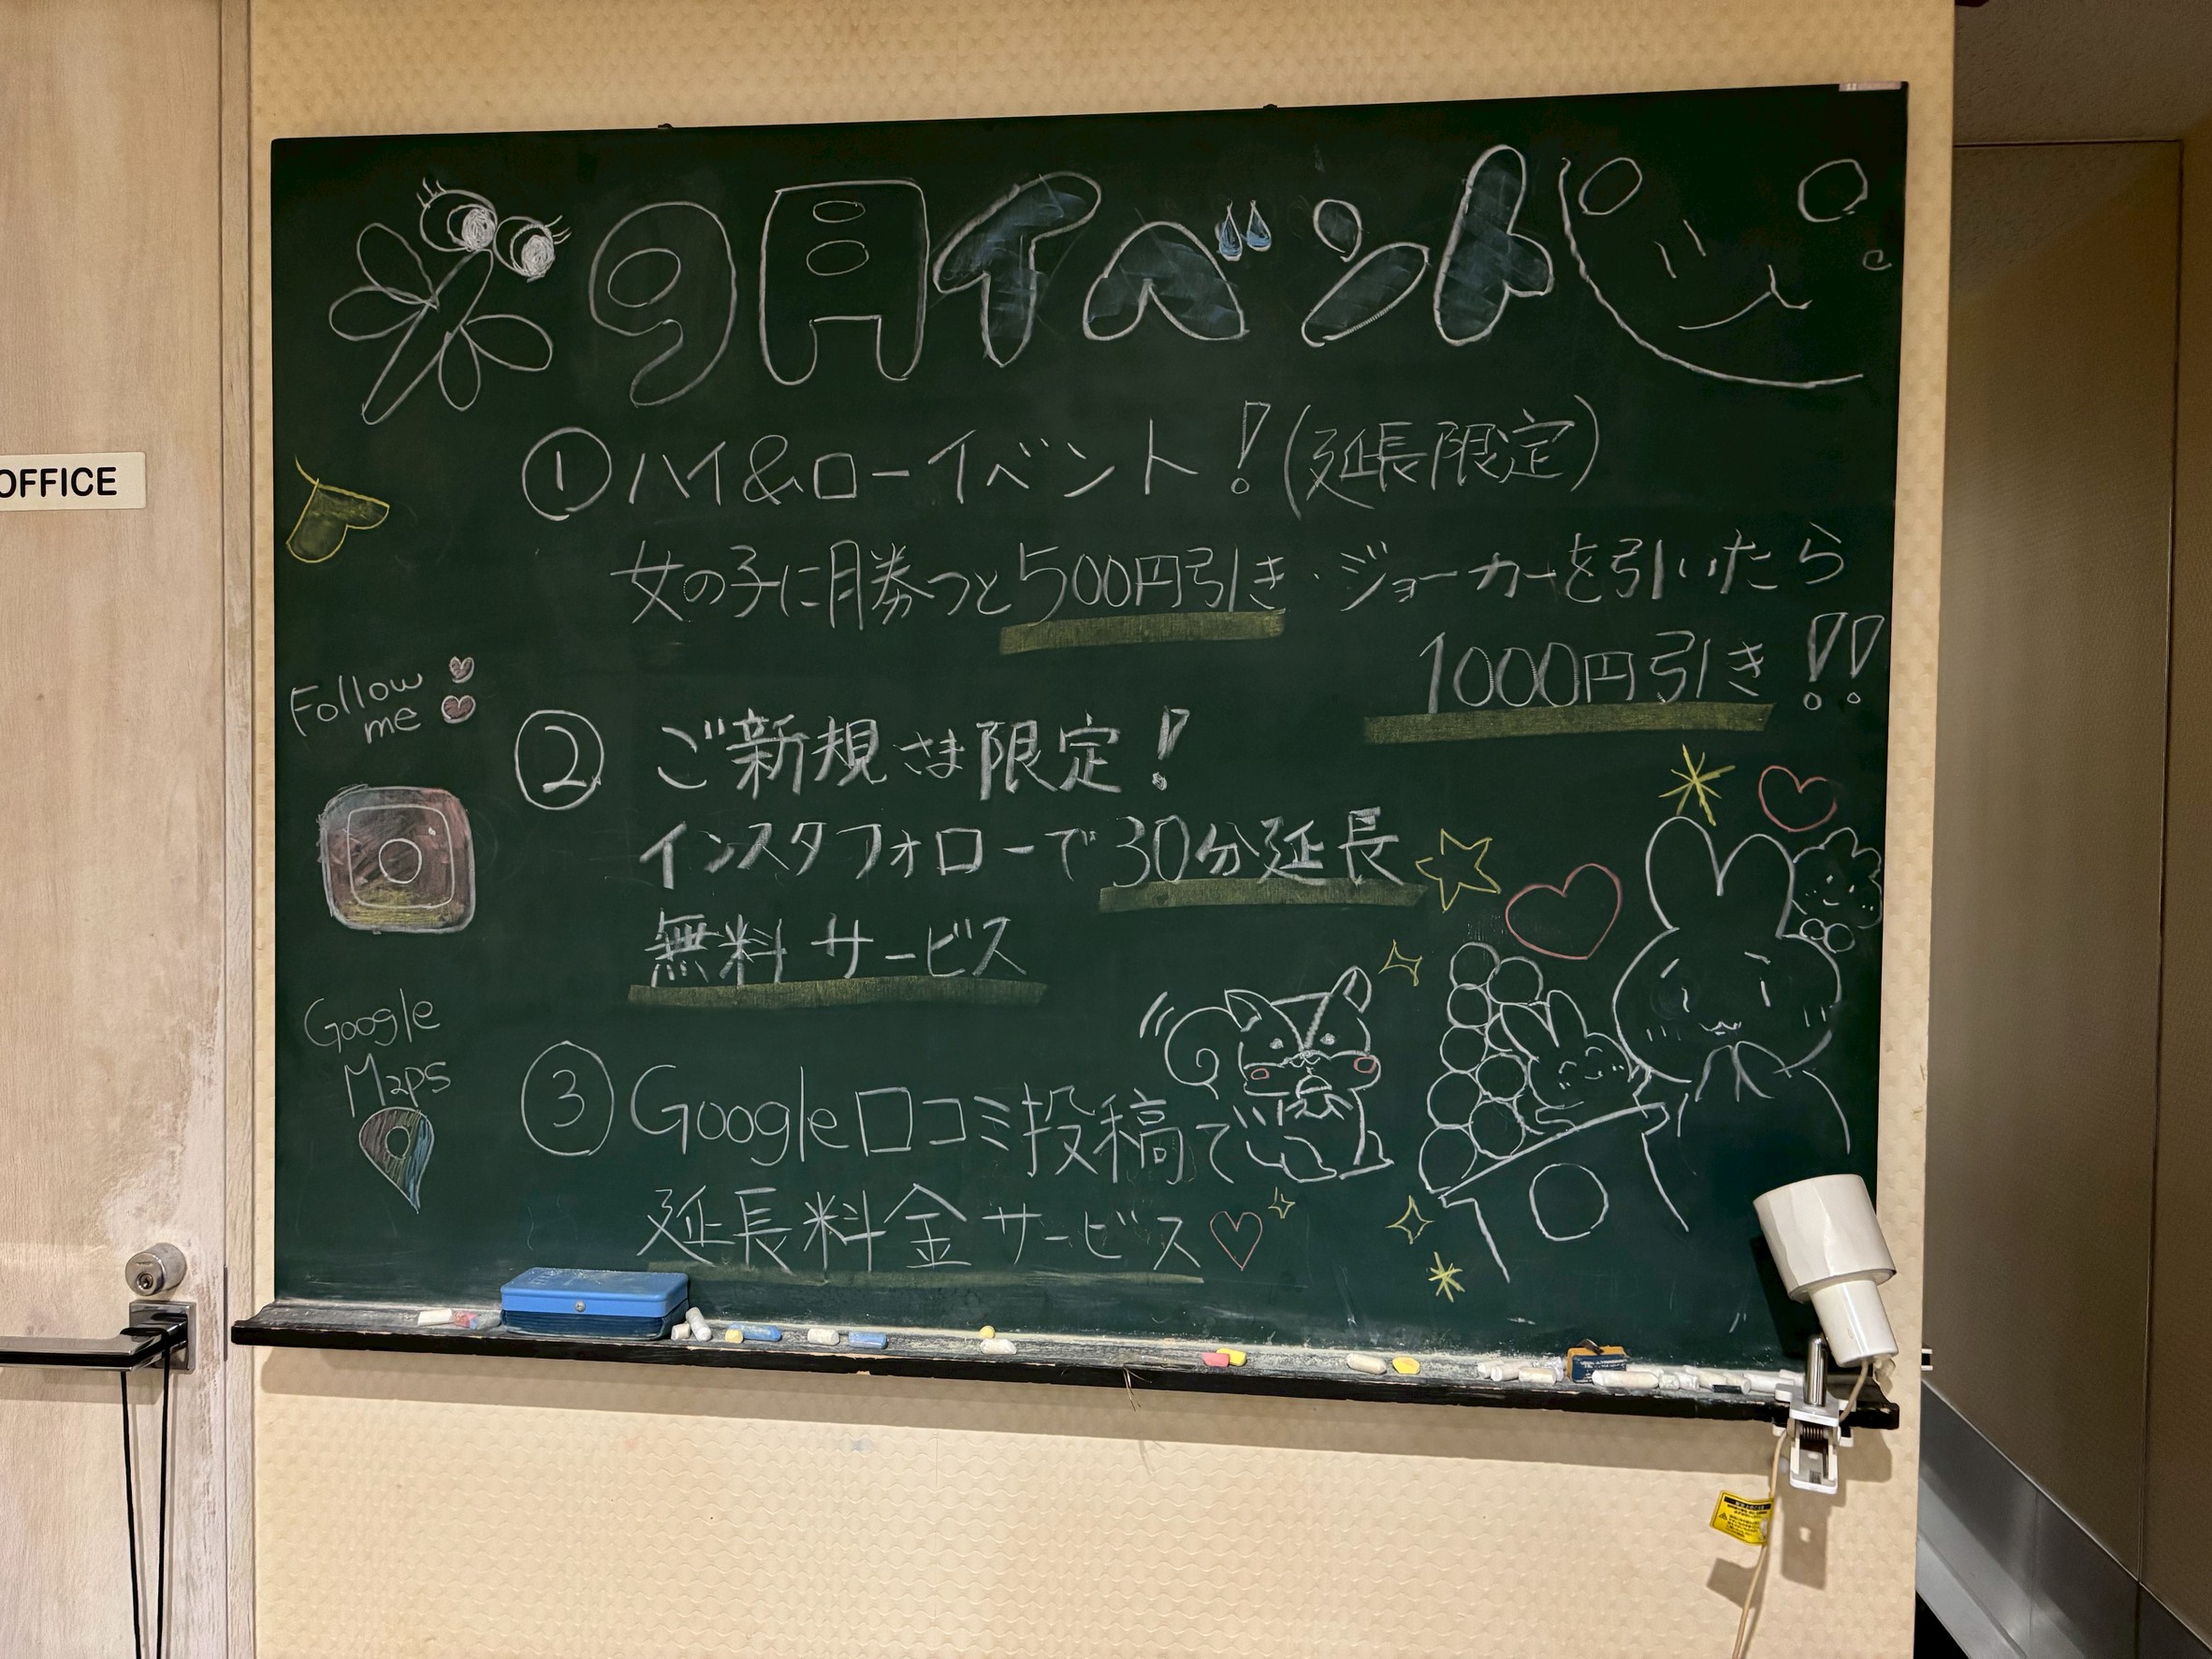 OFFICE
9月イベント
①ハイ&ローイベント!(延長限定)
女の子に勝つと500円引き・ジョーカーを引いたら
1000円引き!!
Follow
me
②ご新規さま限定!
インスタフォローで30分延長
無料サービス
Google
Maps
③Google口コミ投稿で
延長料金サービス♡